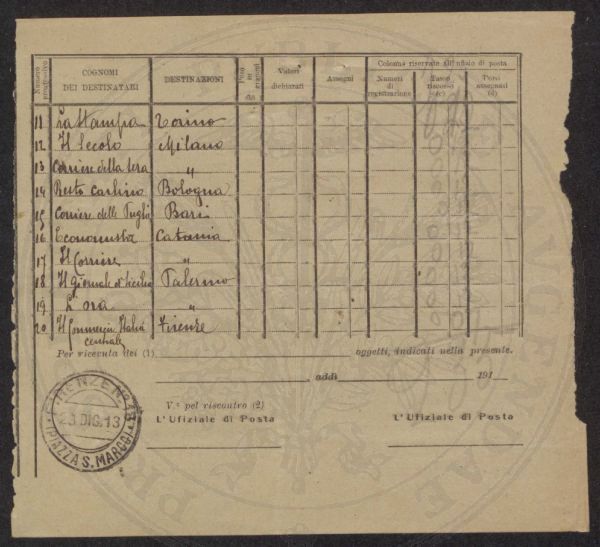 Numero progressivo
COGNOMI DEI DESTINATARI
DESTINAZIONI
Valori dichiarati
Assegni
Colonne riservate all'ufizio di posta
Numeri di registrazione
Tasse riscosse (c)
Porti assegnati (d)
11 La Stampa Torino
12 Il Secolo Milano
13 Corriere della Sera "
14 Resto Carlino Bologna
15 Corriere delle Puglie Bari
16 Economista Catania
17 Il Corriere "
18 Il Giornale di Sicilia Palermo
19 L'Ora "
20 Il Commercio Italia centrale Firenze
Per ricevuta dei (1) oggetti, indicati nella presente.
addì 191
V.° pel riscontro (2)
L'Ufiziale di Posta L'Ufiziale di Posta
FIRENZE N.
23.DIC.13
(PIAZZA S. MARCO)